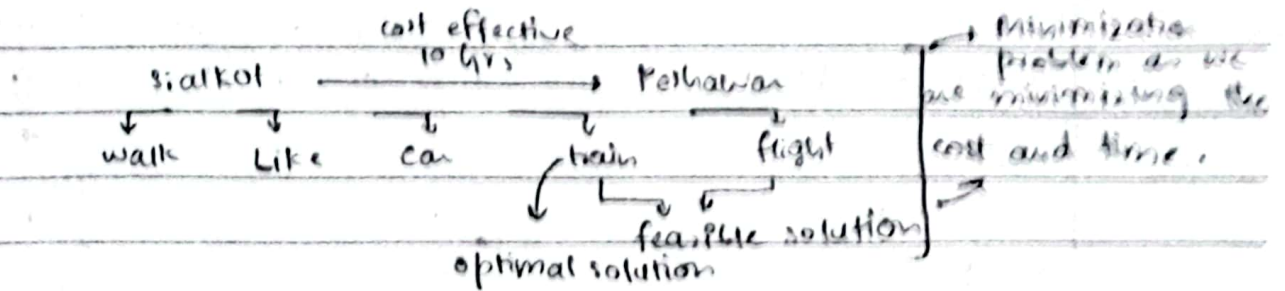 cost effective
10 Hrs
Sialkot → Peshawar
walk Like Car train flight
feasible solution
optimal solution
→ Minimization
problem as we
are minimizing the
cost and time.